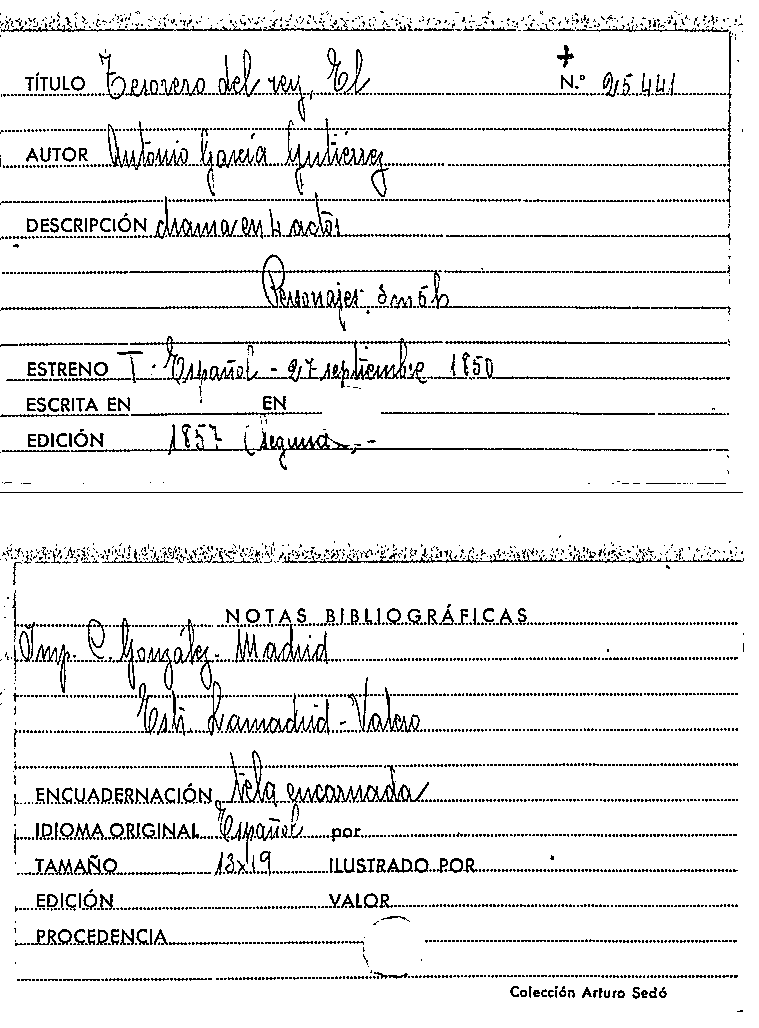 TÍTULO Tesorero del rey, El N.° 25441
AUTOR Antonio García Gutiérrez
DESCRIPCIÓN drama en 4 actos
Personajes. 3m 5h
ESTRENO T. Español - 27 septiembre 1850
ESCRITA EN EN
EDICIÓN 1857 (segunda).-
NOTAS BIBLIOGRÁFICAS
Imp. C. González. Madrid
Estr. Lamadrid - Valero
ENCUADERNACIÓN tela encarnada
IDIOMA ORIGINAL Español por
TAMAÑO 13x19 ILUSTRADO POR
EDICIÓN VALOR
PROCEDENCIA
Colección Arturo Sedó